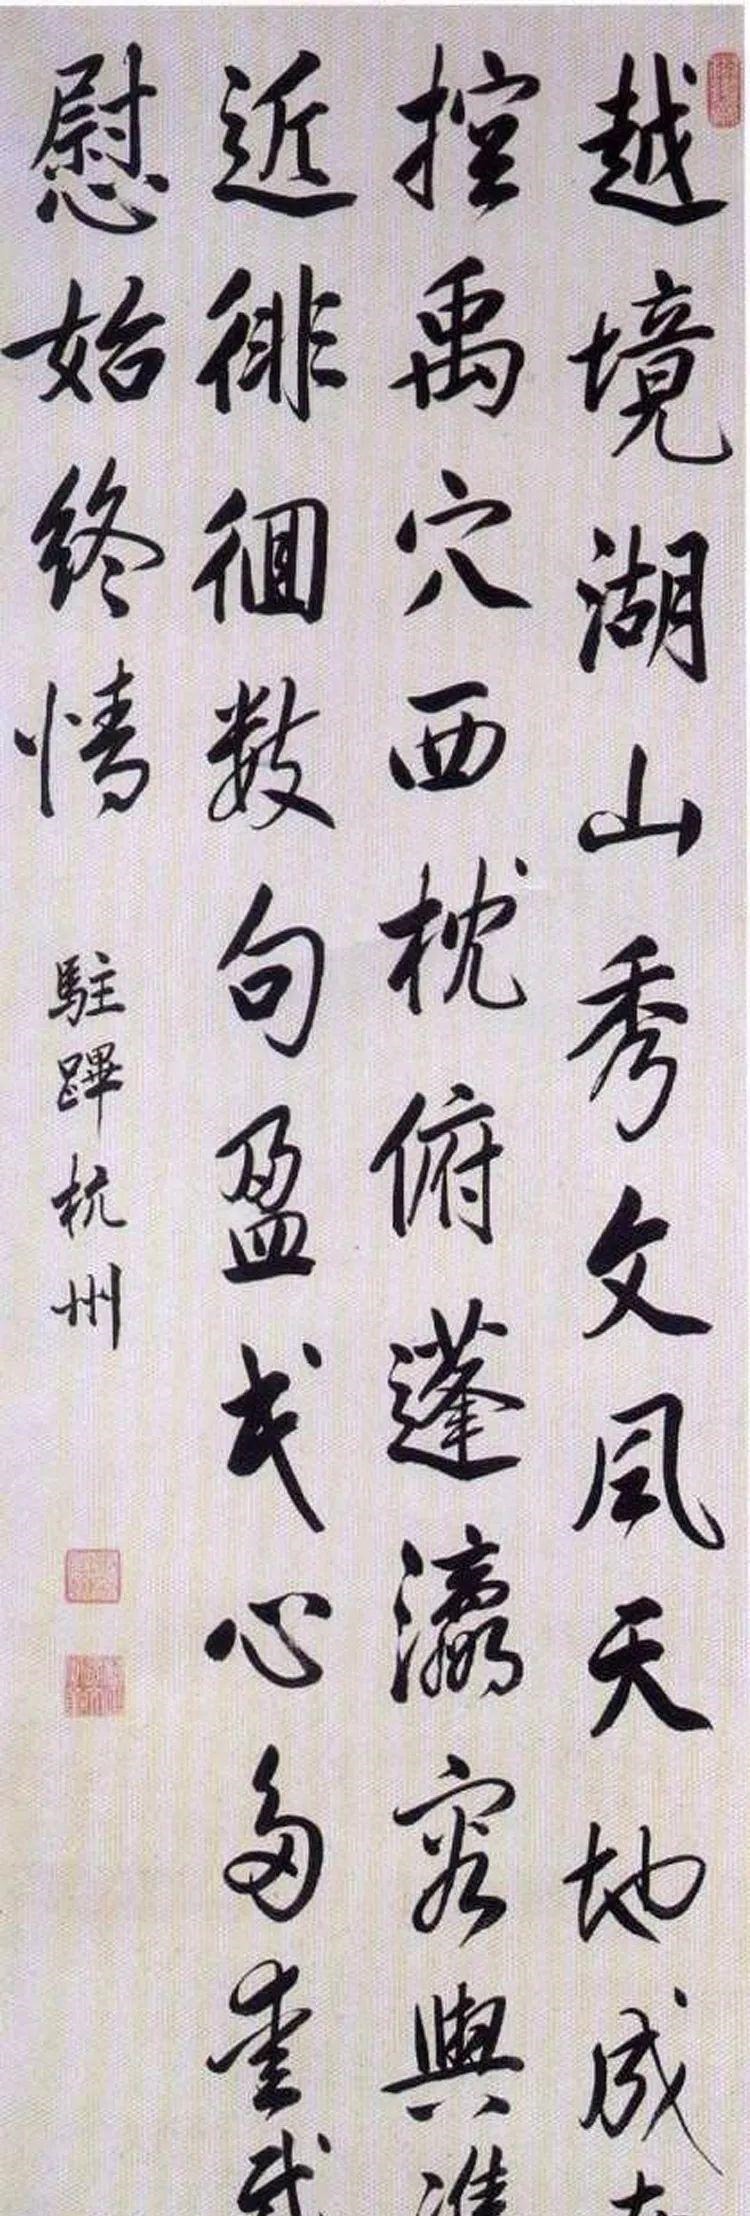 越境湖山秀文风天地成
控禹穴西枕俯蓬瀛容與
近徘徊数句盈戈心多士或
慰始終情
駐蹕杭州